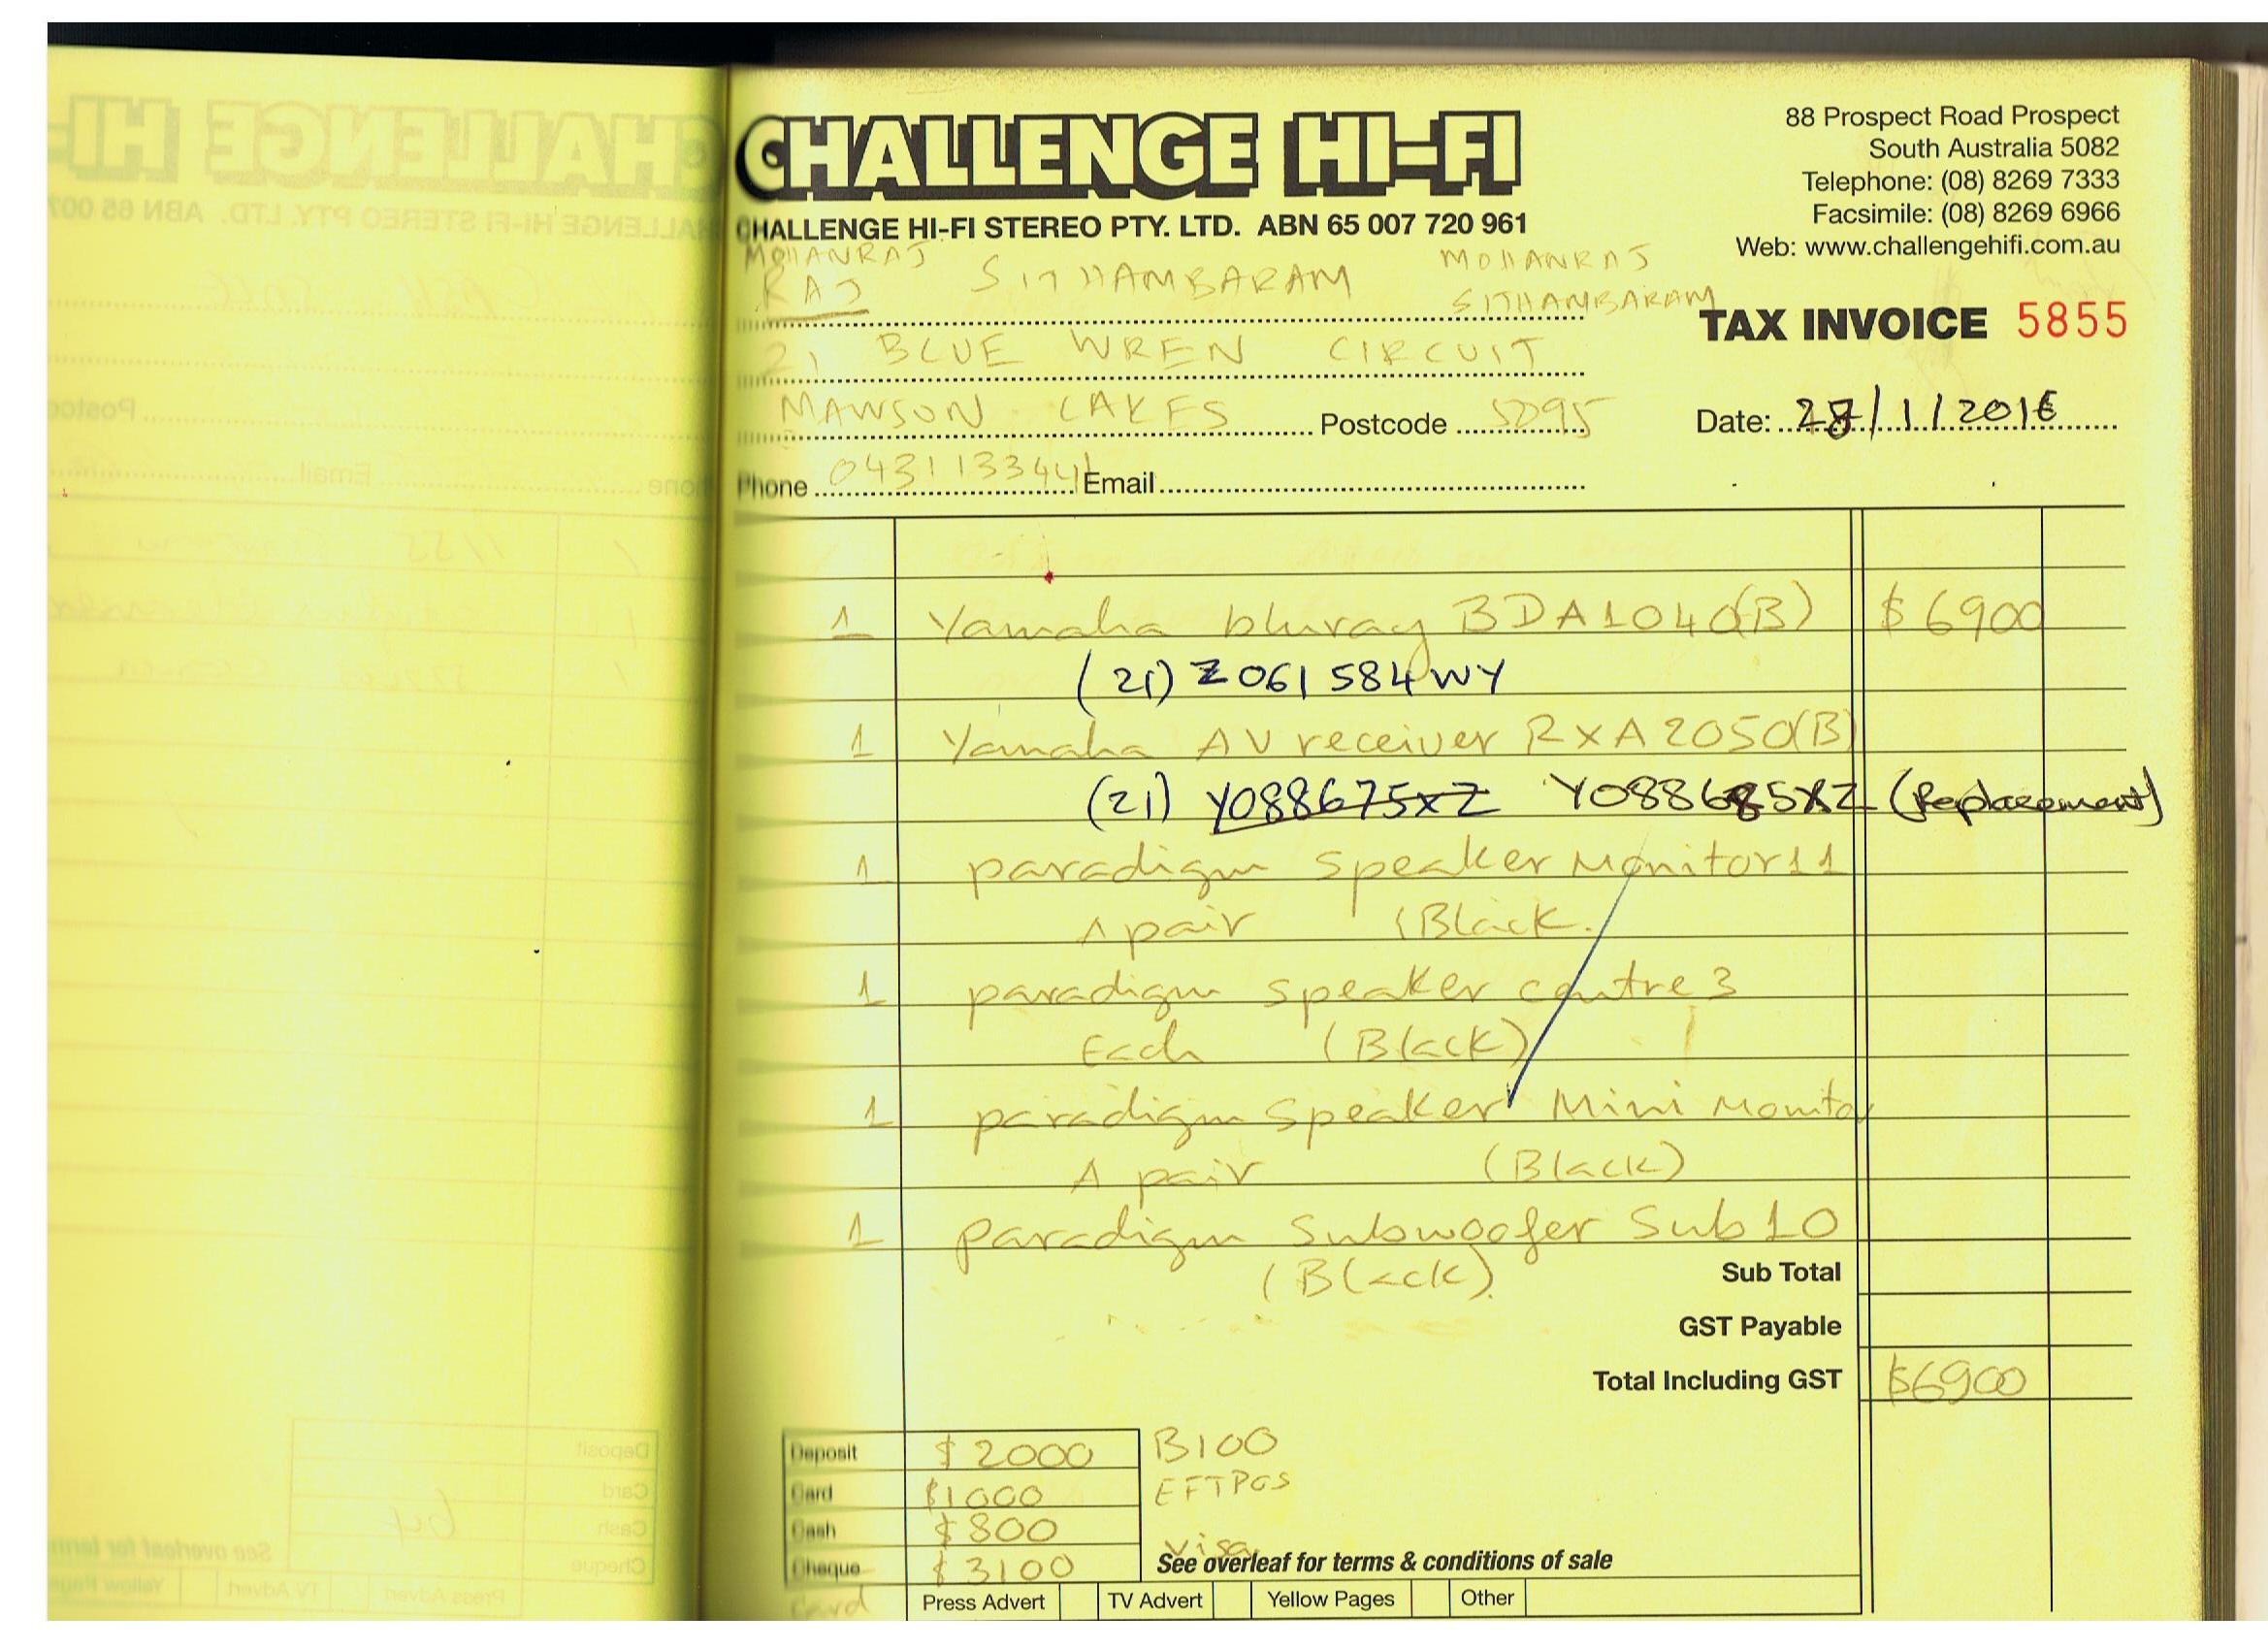 CHALLENGE HI-FI
CHALLENGE HI-FI STEREO PTY. LTD. ABN 65 007 720 961
88 Prospect Road Prospect
South Australia 5082
Telephone: (08) 8269 7333
Facsimile: (08) 8269 6966
Web: www.challengehifi.com.au
MOHANRAJ
RAJ SITHAMBARAM
MOHANRAJ
SITHAMBARAM
TAX INVOICE 5855
21 BLUE WREN CIRCUIT
MAWSON LAKES Postcode 5095
Date: 28/1/2016
Phone 0431133441 Email
1 Yamaha bluray BDA1040(B) $6900
(21) Z061584WY
1 Yamaha AV receiver RXA2050(B)
(21) Y088675XZ Y088685XZ (Replacement)
1 paradigm speaker Monitor11
A pair (Black.
1 paradigm speaker centre 3
Each (Black)
1 paradigm speaker Mini Monitor
A pair (Black)
1 paradigm Subwoofer Sub 10
(Black).
Sub Total
GST Payable
Total Including GST $6900
Deposit $2000 B100
Card $1000 EFTPOS
Cash $800
Cheque $3100 Visa
Card
See overleaf for terms & conditions of sale
Press Advert TV Advert Yellow Pages Other